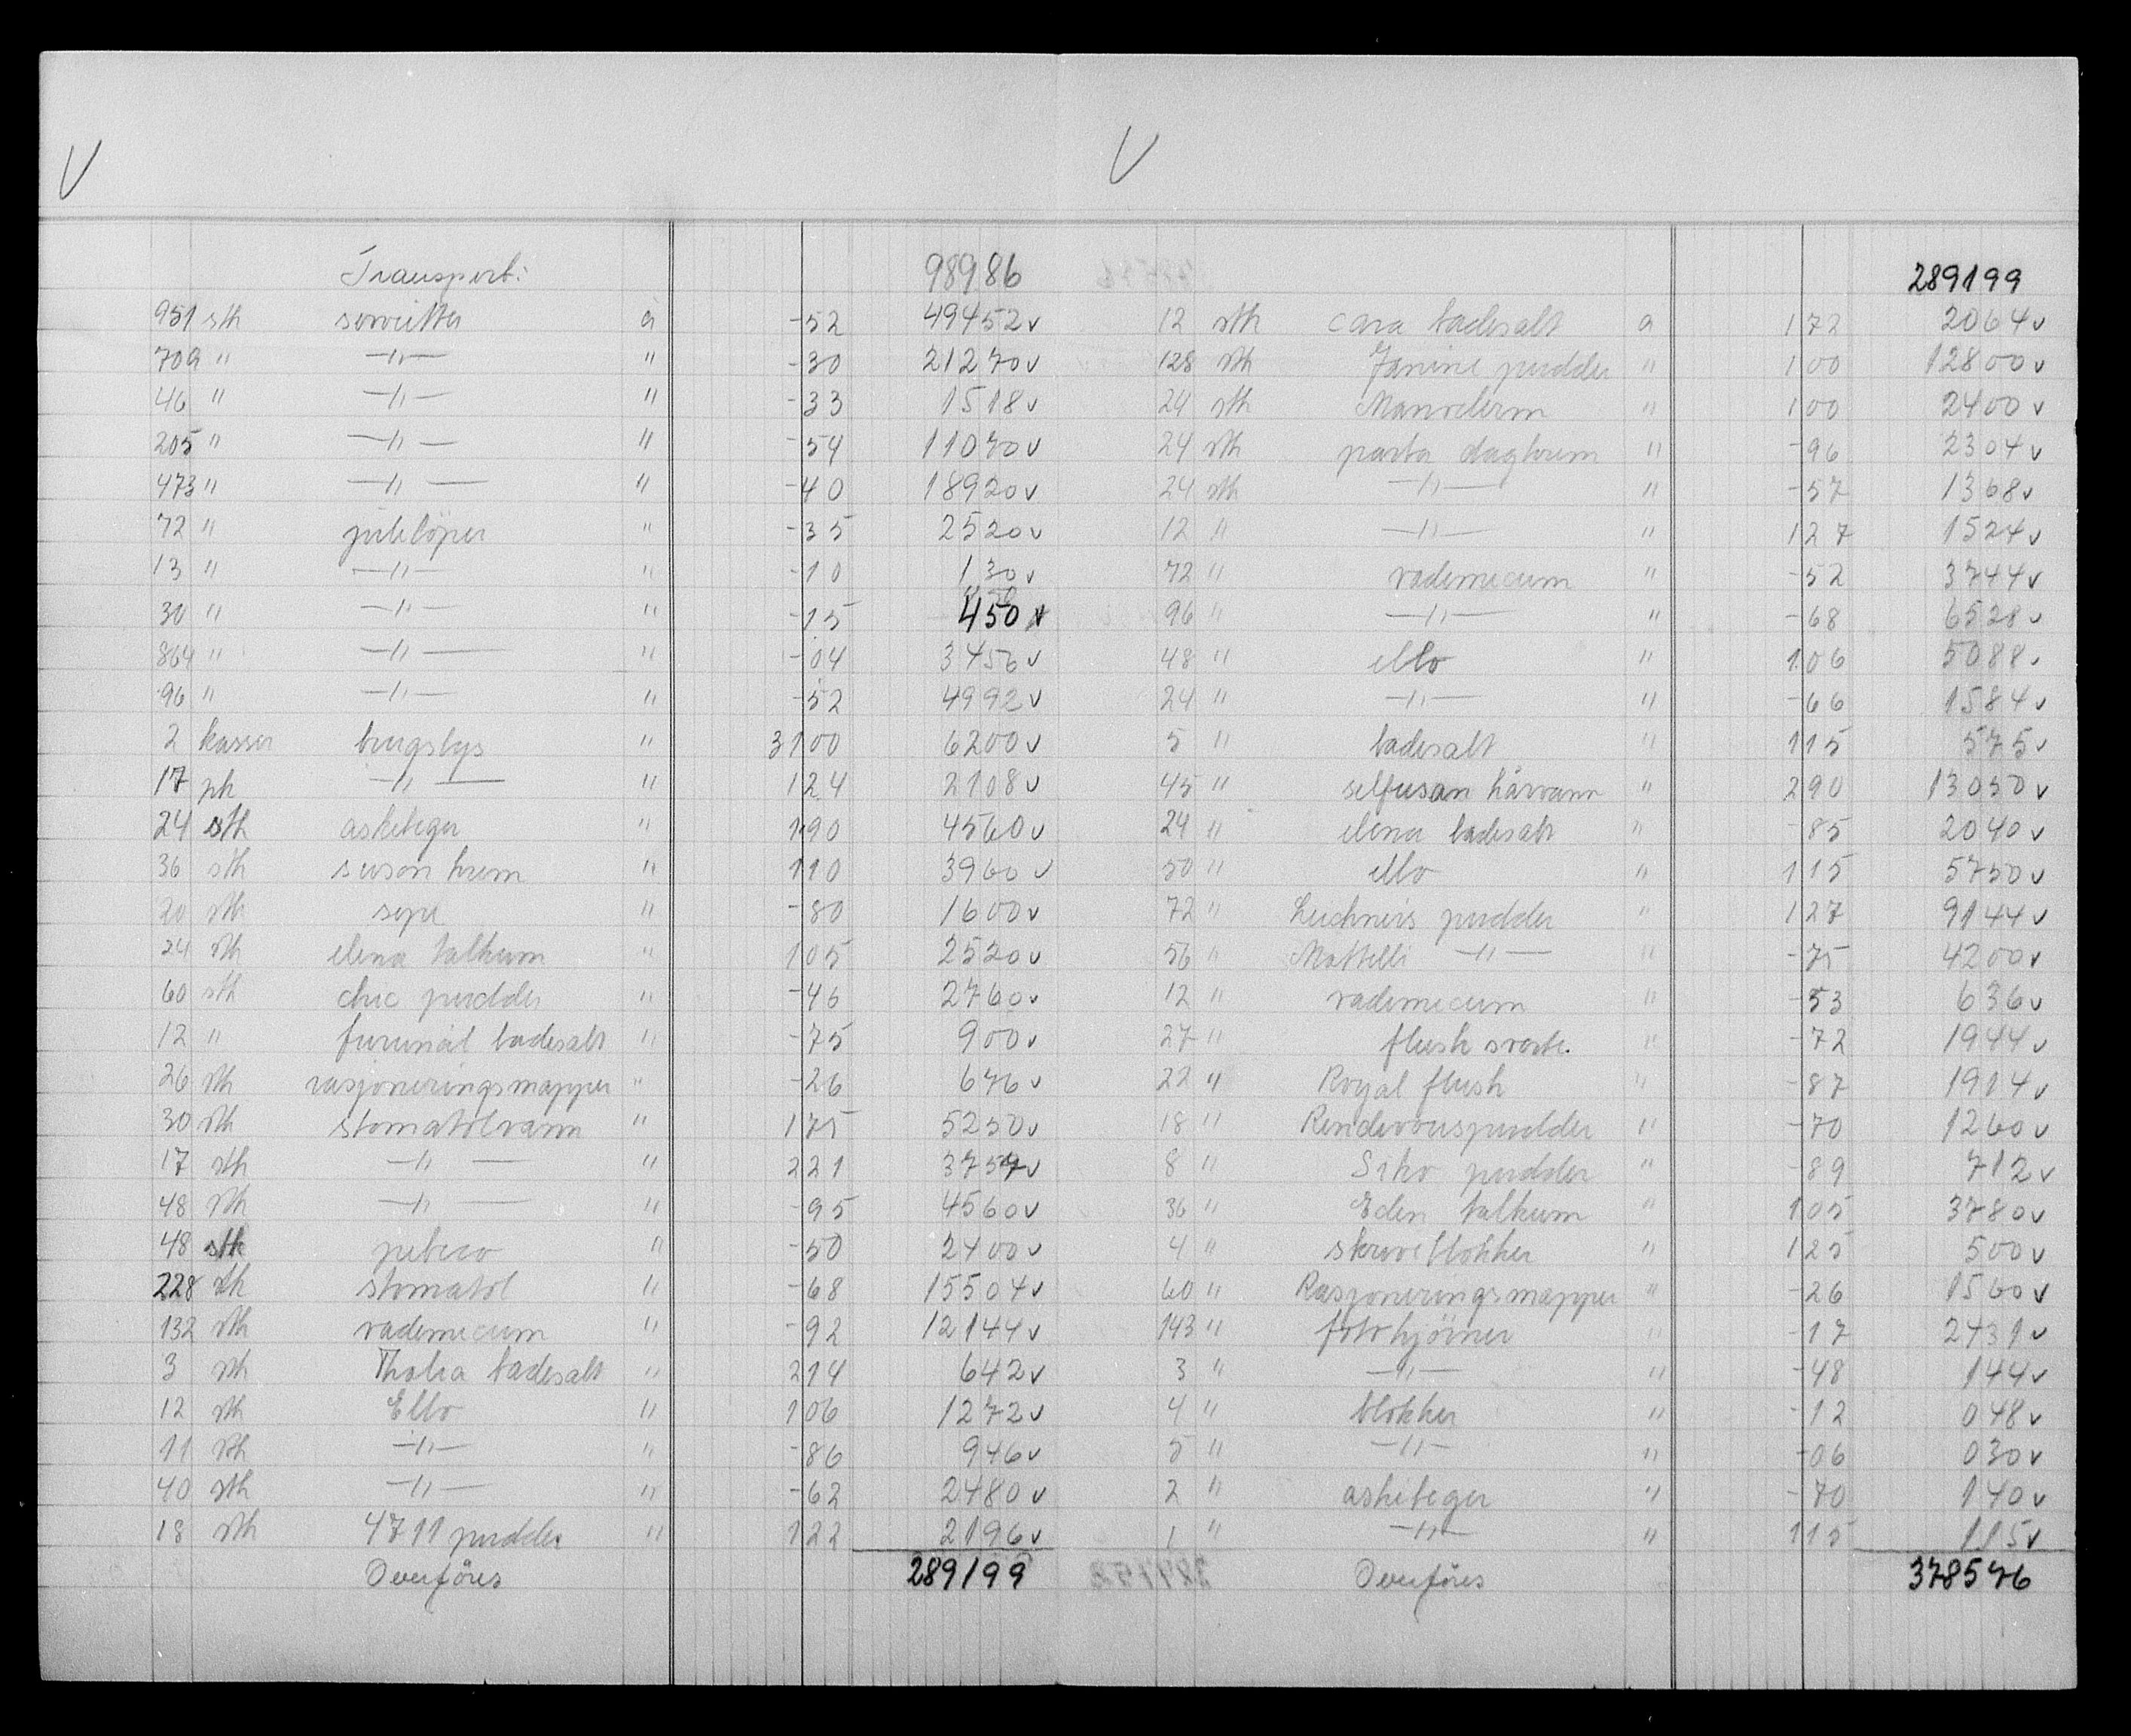 V
Transport: 98986
951 stk servietter à -52 49452 v
709 " —"— " -30 21270 v
46 " —"— " -33 1518 v
205 " —"— " -54 11070 v
473 " —"— " -40 18920 v
72 " juleløper " -35 2520 v
13 " —"— " -10 130 v
30 " —"— " -15 450 v
864 " —"— " -04 3456 v
96 " —"— " -52 4992 v
2 kasser " 3100 6200 v
17 pk —"— " 124 2108 v
24 stk askebeger " 190 4560 v
36 stk suson krem " 110 3960 v
20 stk sepe " -80 1600 v
24 stk elena talkum " 105 2520 v
60 stk chic pudder " -46 2760 v
12 " furunål badesalt " -75 900 v
26 stk rasjoneringsmapper " -26 676 v
30 stk stomatolvann " 175 5250 v
17 stk —"— " 221 3757 v
48 stk —"— " -95 4560 v
48 stk pebeco " -50 2400 v
228 stk stomatol " -68 15504 v
132 stk vademecum " -92 12144 v
3 stk Thalia badesalt " 214 642 v
12 stk Ello " 106 1272 v
11 stk —"— " -86 946 v
40 stk —"— " -62 2480 v
18 stk 4711 pudder " 122 2196 v
Overföres 289199
V
289199
12 stk cara badesalt a 172 2064 v
128 stk Janine pudder " 100 12800 v
24 stk Manoderm " 100 2400 v
24 stk dagkrem " -96 2304 v
24 stk —"— " -57 1368 v
12 " —"— " 127 1524 v
72 " vademecum " -52 3744 v
96 " —"— " -68 6528 v
48 " ello " 106 5088 v
24 " —"— " -66 1584 v
5 " badesalt " 115 575 v
45 " selfusan hårvann " 290 13050 v
24 " elena badesalt " -85 2040 v
50 " ello " 115 5750 v
72 " Leichners pudder " 127 9144 v
56 " Mattelli —"— " -75 4200 v
12 " vademecum " -53 636 v
27 " flush svarte. " -72 1944 v
22 " Royal flush " -87 1914 v
18 " Rendevouspudder " -70 1260 v
8 " Siko pudder " -89 712 v
36 " Eden talkum " 105 3780 v
4 " skriveblokker " 125 500 v
60 " Rasjoneringsmapper " -26 1560 v
143 " fotohjörner " -17 2431 v
3 " —"— " -48 144 v
4 " blokker " -12 048 v
5 " —"— " -06 030 v
2 " askebeger " -70 140 v
1 " —"— " 115 115 v
Overföres 378576